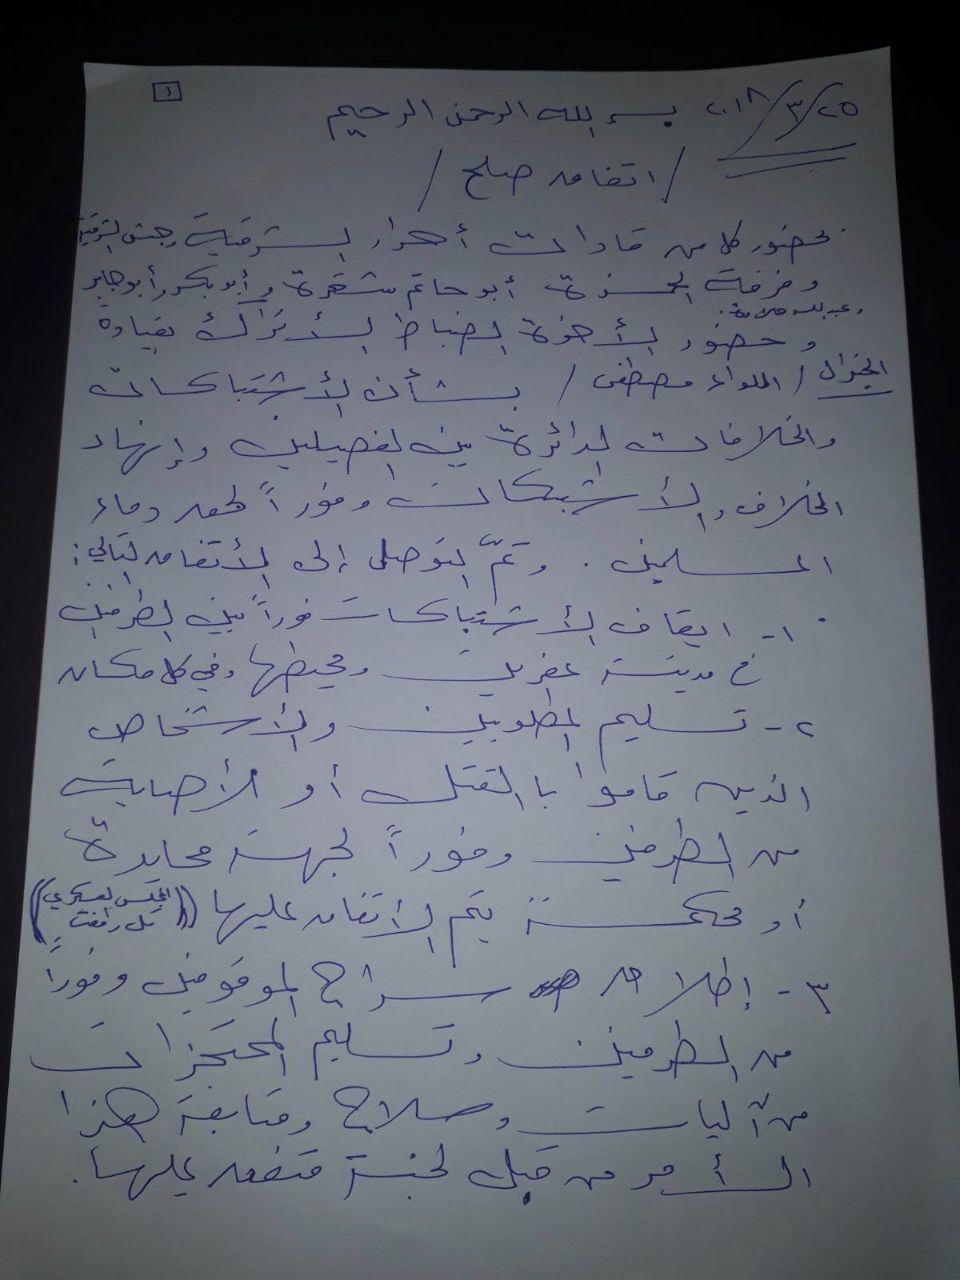 ١
٢٠١٨/٣/٢٥ بسم الله الرحمن الرحيم
/ اتفاق صلح /
بحضور كل من قادات أحرار الشرقية وجيش الشرقية
وفرقة الحمزة أبو حاتم شقرة وأبو بكر وأبو جابر
وعبدالله حلاوة.
وحضور الأخوة الضباط الأتراك بقيادة
الجنرال / اللواء مصطفى / بشأن الأشتباكات
والخلافات الدائرة بين الفصيلين وإنهاء
الخلاف والأشتبكات وفوراً لحقن دماء
المسلمين . وتمّ التوصل إلى الأتفاق التالي:
١- ايقاف الأشتباكات فوراً بين الطرفين
في مدينة عفرين ومحيطها وفي كل مكان
٢- تسليم المطلوبين والأشخاص
الذين قاموا بالقتل أو الأصابة
من الطرفين وفوراً لجهة محايدة
أو محكمة يتم الأتفاق عليها ((المجلس العسكري
تل رفعت))
٣- إطلاق سراح الموقوفين وفوراً
من الطرفين وتسليم المحتجزات
من آليات وسلاح ومتابعة هذا
الأمر من قبل لجنة متفق عليها.